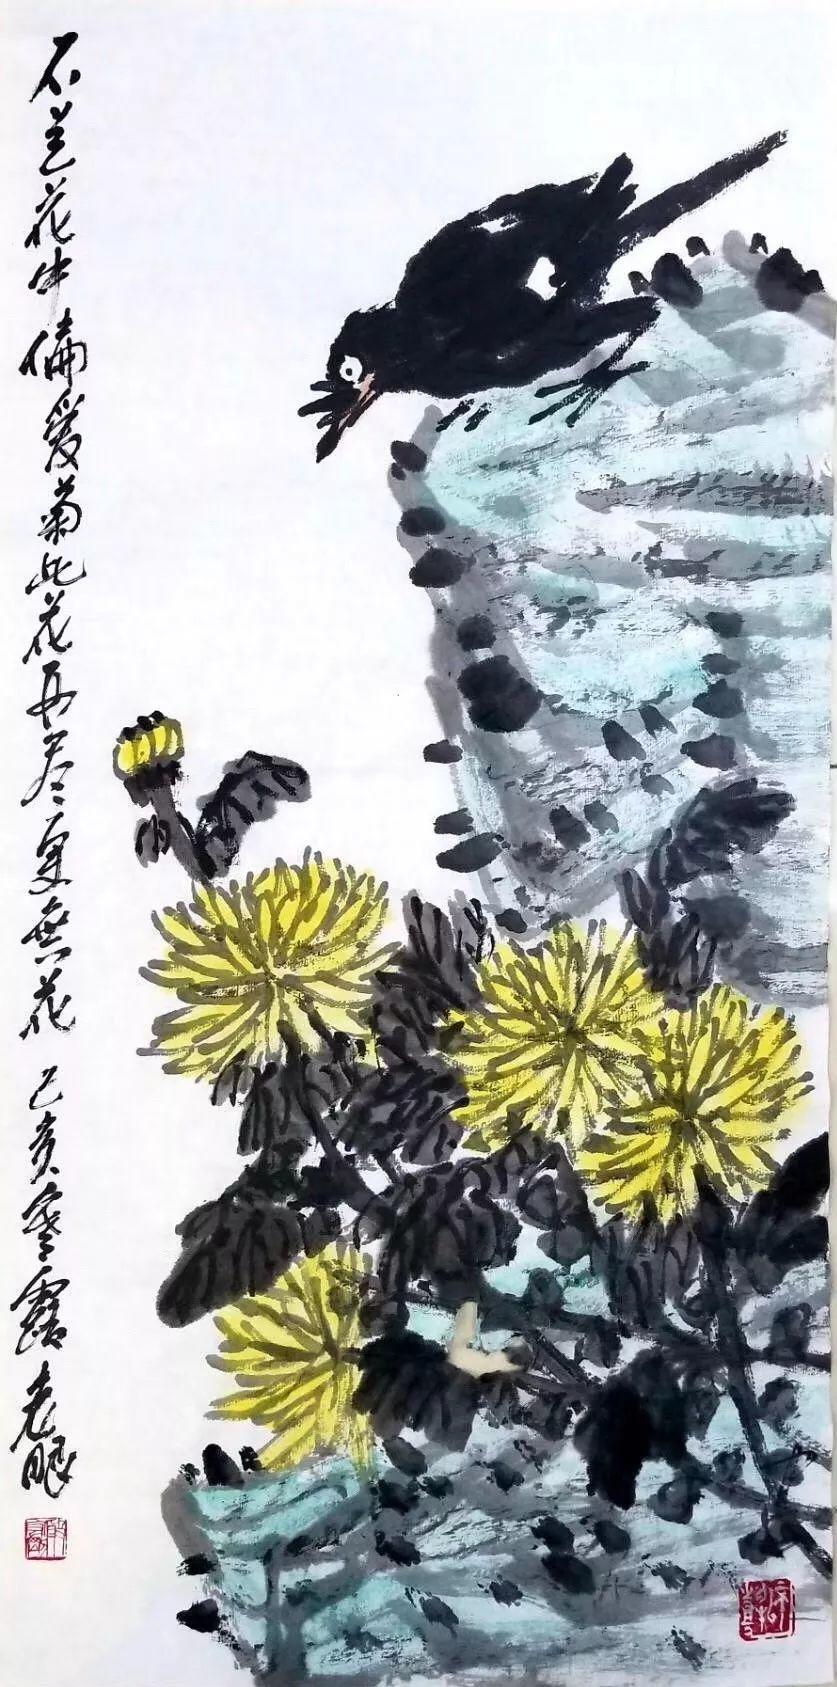 不是花中偏爱菊此花开尽更無花 己亥寒露 老眼